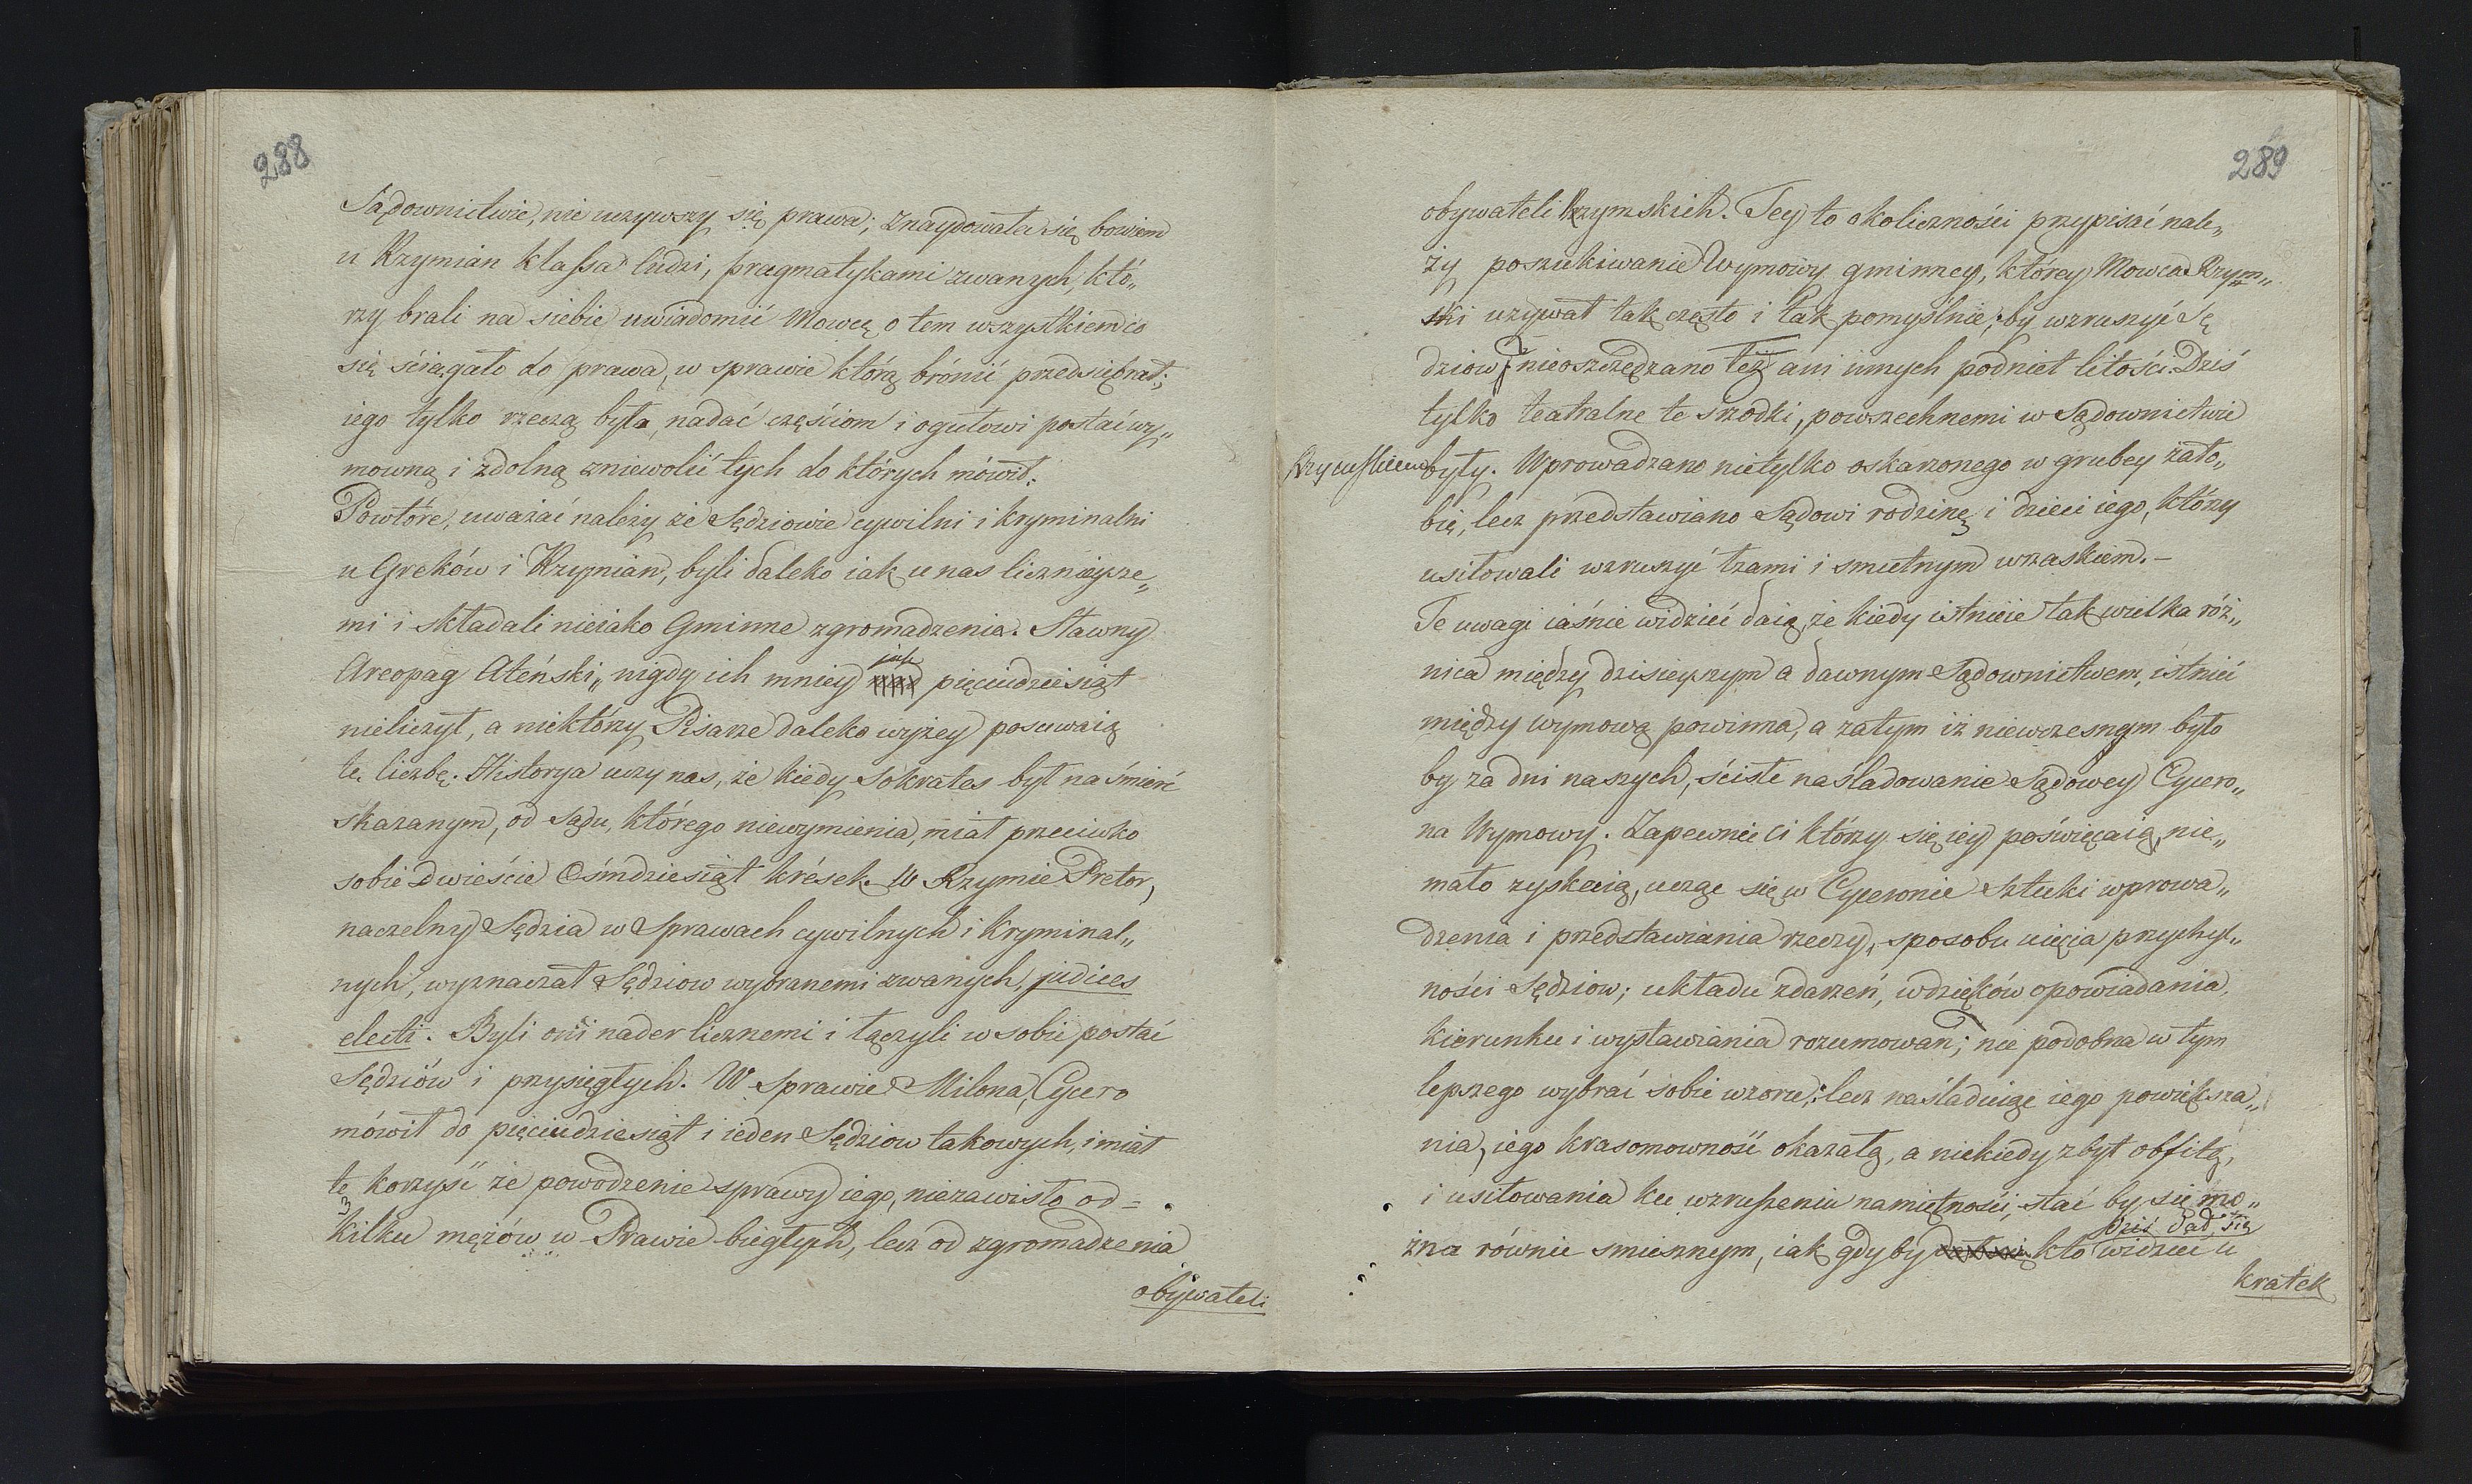 288
Sądownictwie, nie uczywszy się prawa; znaydowała się bowiem
u Rzymian klassa ludzi, pragmatykami zwanych, któ„
rzy brali na siebie uwiadomić Mowcę o tem wszystkiem co
się ściągało do prawa, w sprawie którą brónić przedsiębrał;
iego tylko rzeczą była, nadać częściom i ogułowi postać wy„
mowną i zdolną zniewolić tych do których mówił.
Powtóre, uważać należy że Sędziowie cywilni i kryminalni
u Greków i Rzymian, byli daleko iak u nas licznieysze„
mi i składali nieiako Gminne zgromadzenia. Sławny
Areopag Ateński„ nigdy ich mniey jak pięciudziesiąt
nieliczył, a niektórzy Pisarze daleko wyżey posuwaią
tę liczbę. Historya uczy nas, że kiedy Sokrates był na śmierć
skazanym, od Sądu, którego niewymienia, miał przeciwko
sobie dwieście Ośmdziesiąt krések. W Rzymie Pretor,
naczelny Sędzia w Sprawach cywilnych i Kryminal„
nych, wyznaczał Sędziow wybranemi zwanych, judices
electi. Byli oni nader licznemi i łączyli w sobie postać
Sędziów i przysięgłych. W Sprawie Milona, Cycero
mówił do pięciudziesiąt i ieden Sędziow takowych, i miał
tę korzyść że powodzenie sprawy iego, niezawisło od =
kilku mężów w Prawie biegłych, lecz od zgromadzenia
obywateli
289
obywateli Rzymskich. Tey to okoliczności przypisać nale„
ży poszukiwanie Wymowy gminney, którey Mowca Rzym„
ski używał tak często i tak pomyślnie; by wzruszyć Sę
dziow, nieoszczędzano łez ani innych podniet litości. Dziś
tylko teatralne te srzodki, powszechnemi w Sądownictwie
Rzymskiem były. Wprowadzano nietylko oskarzonego w grubey żało„
bie, lecz przedstawiano Sądowi rodzinę i dzieci iego, którzy
usiłowali wzruszyć łzami i smutnym wrzaskiem. –
Te uwagi iaśnie widzieć daią, że kiedy istnieie tak wielka róż„
nica między dzisieyszym a dawnym Sądownictwem, istnieć
między wymową powinna, a zatym iż niewczesnym było
by za dni naszych, ściste naśladowanie Sądowey Cycero„
na Wymowy. Zapewnie ci którzy się iey poświęcaią, nie„
mało zyskaią, ucząc się w Cyceronie Sztuki wprowa„
dzenia i przedstawiania rzeczy, sposobu uięcia przychyl„
ności Sędziow; układu zdarzeń, wdzięków opowiadania,
kierunku i wystawiania rozumowań; nie podobna w tym
lepszego wybrać sobie wzoru; lecz naśladuiąc iego powiększa„
nia, iego krasomowność okazałą, a niekiedy zbyt obfitą,
i usiłowania ku wzruszeniu namiętności, stać by się mo„
żna równie smiesznym, iak gdyby kto dziś dał się widzieć u
kratek